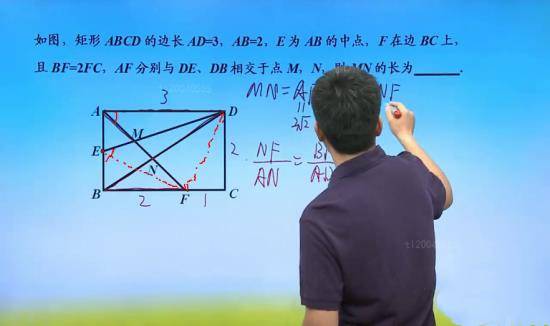 如图，矩形 ABCD 的边长 AD=3，AB=2，E 为 AB 的中点，F 在边 BC 上，
且 BF=2FC，AF 分别与 DE、DB 相交于点 M，N，则 MN 的长为______.
3
MN=A NF
2√2
A D
M
E 2
NF = B
AN AD
N
B 2 F 1 C